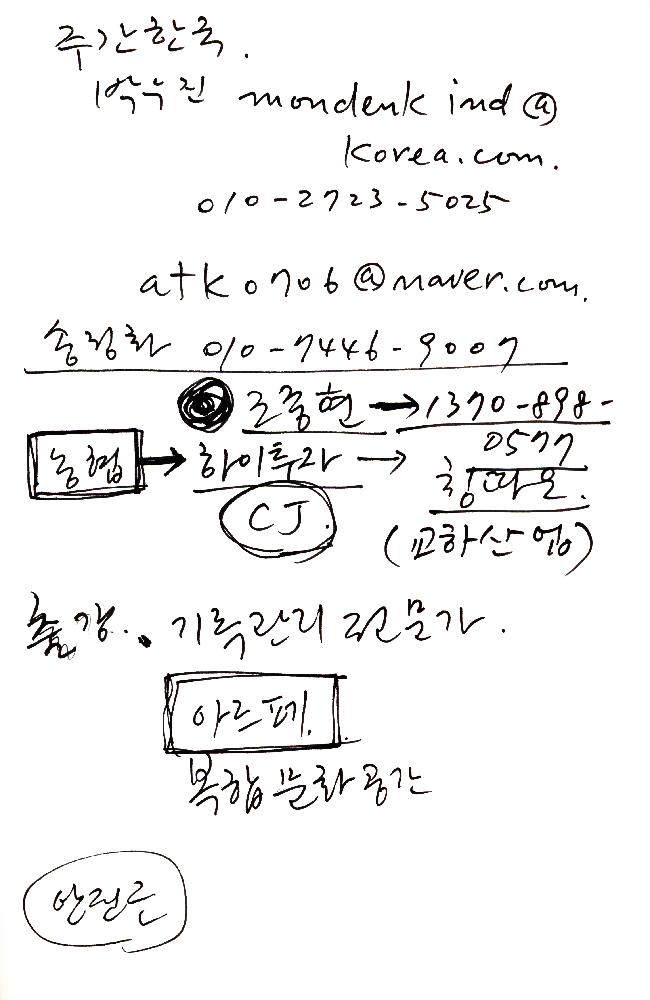 주간한국.
박수진 mondenkind@
korea.com.
010-2723-5025
atk0706@naver.com.
송정화 010-7446-9007
조중현 → 1370-898-
0577
농협 → 하이투자 → 칭따오.
CJ.
(교하산업)
기록관리 전문가.
아르페.
복합문화공간